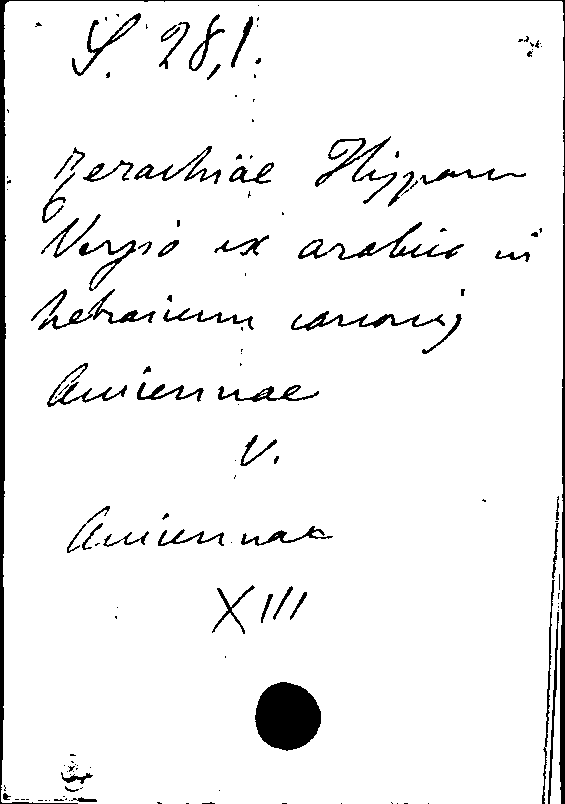 S. 28,1.
Zerachiae Hispani
Versio ex arabico in
hebraicum canonis
Avicennae
V.
Avicennae
XIII